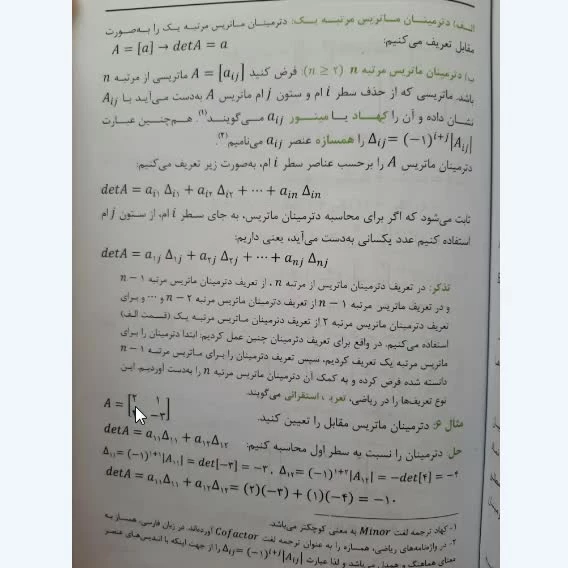 الف) دترمینان ماتریس مرتبه یک: دترمینان ماتریس مرتبه یک را به‌صورت
مقابل تعریف می‌کنیم: A = [a] → detA = a
ب) دترمینان ماتریس مرتبه n (n ≥ ۲): فرض کنید A = [aij] ماتریسی از مرتبه n
باشد. ماتریسی که از حذف سطر i ام و ستون j ام ماتریس A به‌دست می‌آید با Aij
نشان داده و آن را کهاد یا مینور aij می‌گویند(۱). هم‌چنین عبارت
Δij = (−۱)^i+j |Aij| را همسازه عنصر aij می‌نامیم(۲).
دترمینان ماتریس A را برحسب عناصر سطر i ام، به‌صورت زیر تعریف می‌کنیم:
detA = ai۱ Δi۱ + ai۲ Δi۲ + ⋯ + ain Δin
ثابت می‌شود که اگر برای محاسبه دترمینان ماتریس، به جای سطر i ام، از ستون j ام
استفاده کنیم عدد یکسانی به‌دست می‌آید، یعنی داریم:
detA = a۱j Δ۱j + a۲j Δ۲j + ⋯ + anj Δnj
تذکر: در تعریف دترمینان ماتریس از مرتبه n، از تعریف دترمینان ماتریس مرتبه n − ۱
و در تعریف ماتریس مرتبه n − ۱ از تعریف دترمینان ماتریس مرتبه n − ۲ و ⋯ و برای
تعریف دترمینان ماتریس مرتبه ۲ از تعریف دترمینان ماتریس مرتبه یک (قسمت الف)
استفاده می‌کنیم. در واقع برای تعریف دترمینان چنین عمل کردیم: ابتدا دترمینان را برای
ماتریس مرتبه یک تعریف کردیم، سپس تعریف دترمینان را برای ماتریس مرتبه n − ۱
دانسته شده فرض کرده و به کمک آن دترمینان ماتریس مرتبه n را به‌دست آوردیم. این
نوع تعریف‌ها را در ریاضی، تعریف استقرائی می‌گویند.
مثال ۶: دترمینان ماتریس مقابل را تعیین کنید. A = [۲ ۱
−۳]
حل: دترمینان را نسبت به سطر اول محاسبه کنیم: detA = a۱۱Δ۱۱ + a۱۲Δ۱۲
Δ۱۱ = (−۱)^۱+۱ |A۱۱| = det[−۳] = −۳ , Δ۱۲ = (−۱)^۱+۲ |A۱۲| = −det[۴] = −۴
detA = a۱۱Δ۱۱ + a۱۲Δ۱۲ = (۲)(−۳) + (۱)(−۴) = −۱۰
۱- کهاد ترجمه لغت Minor به معنی کوچکتر می‌باشد.
۲. در واژه‌نامه‌های ریاضی، همسازه را به عنوان ترجمه لغت Cofactor آورده‌اند. در زبان فارسی، همساز به
معنای هماهنگ و همدل می‌باشد و لذا عبارت Δij = (−۱)^i+j |Aij| را از جهت اینکه با اندیس‌های عنصر